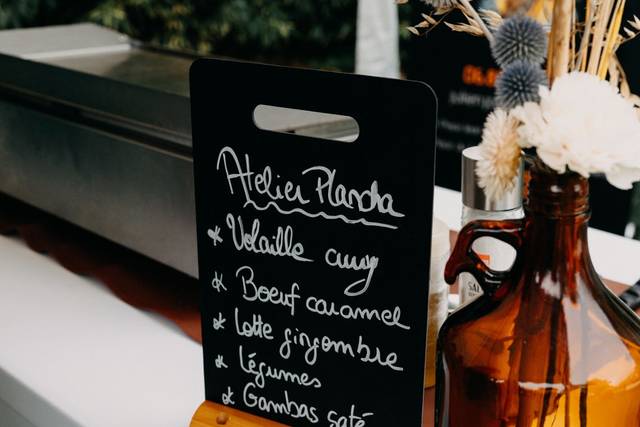 Atelier Plancha
* Volaille curry
* Boeuf caramel
* Lotte gingembre
* Légumes
* Gambas saté
SAL